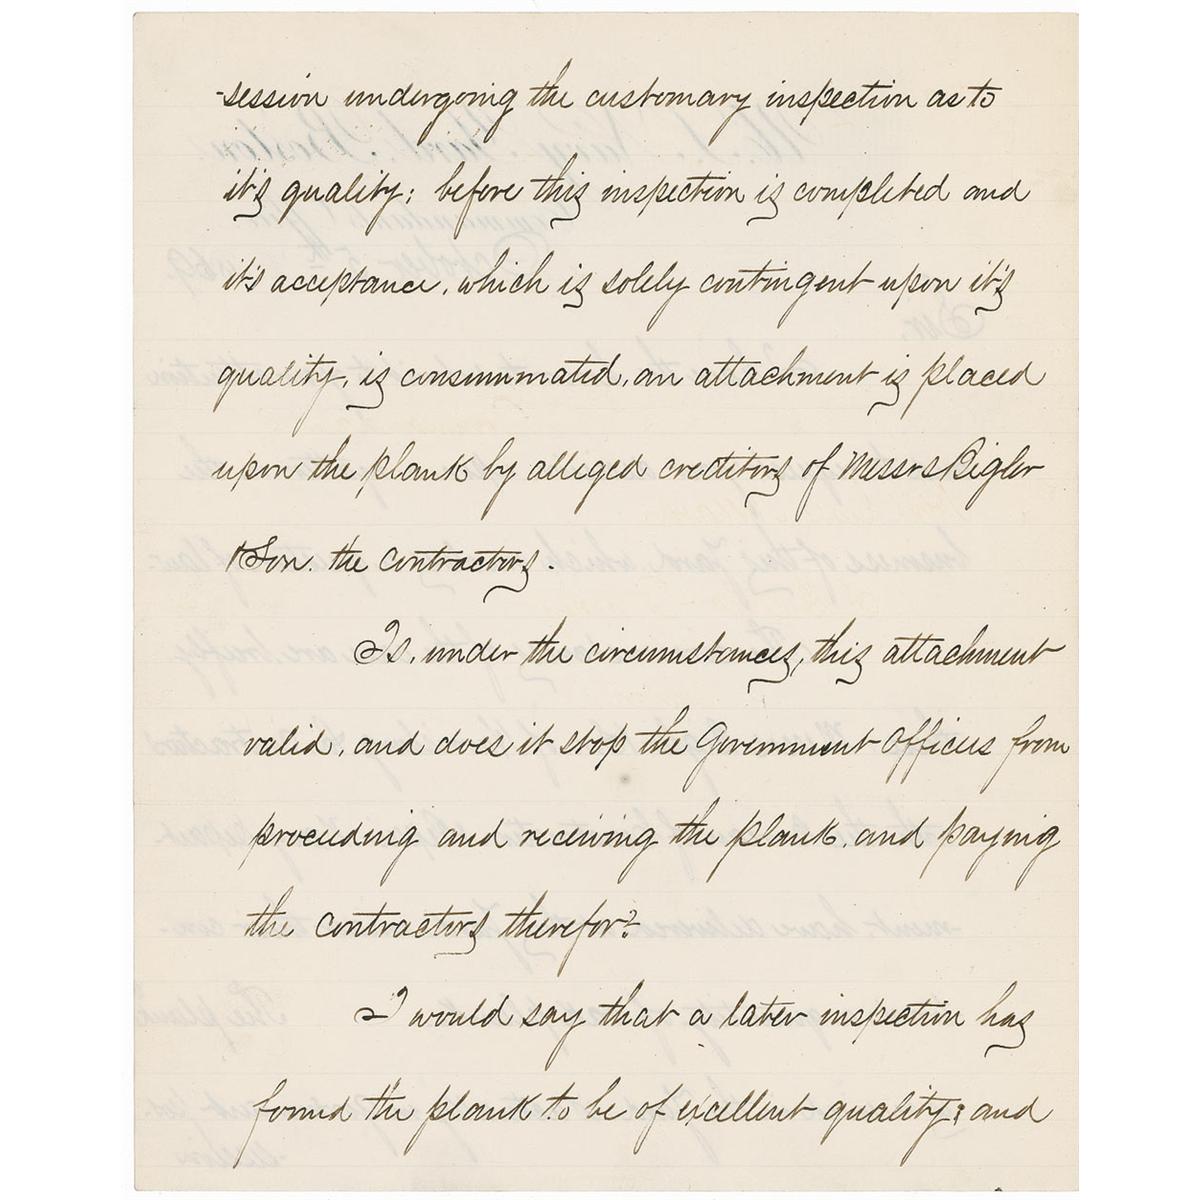 -session undergoing the customary inspection as to
it's quality; before this inspection is completed and
it's acceptance, which is solely contingent upon it's
quality, is consummated, an attachment is placed
upon the plank by alleged creditors of Messrs Bigler
& Son. the contractors.
Is, under the circumstances, this attachment
valid, and does it stop the Government Officers from
proceeding and receiving the plank, and paying
the contractors therefor?
I would say that a later inspection has
found the plank to be of excellent quality; and